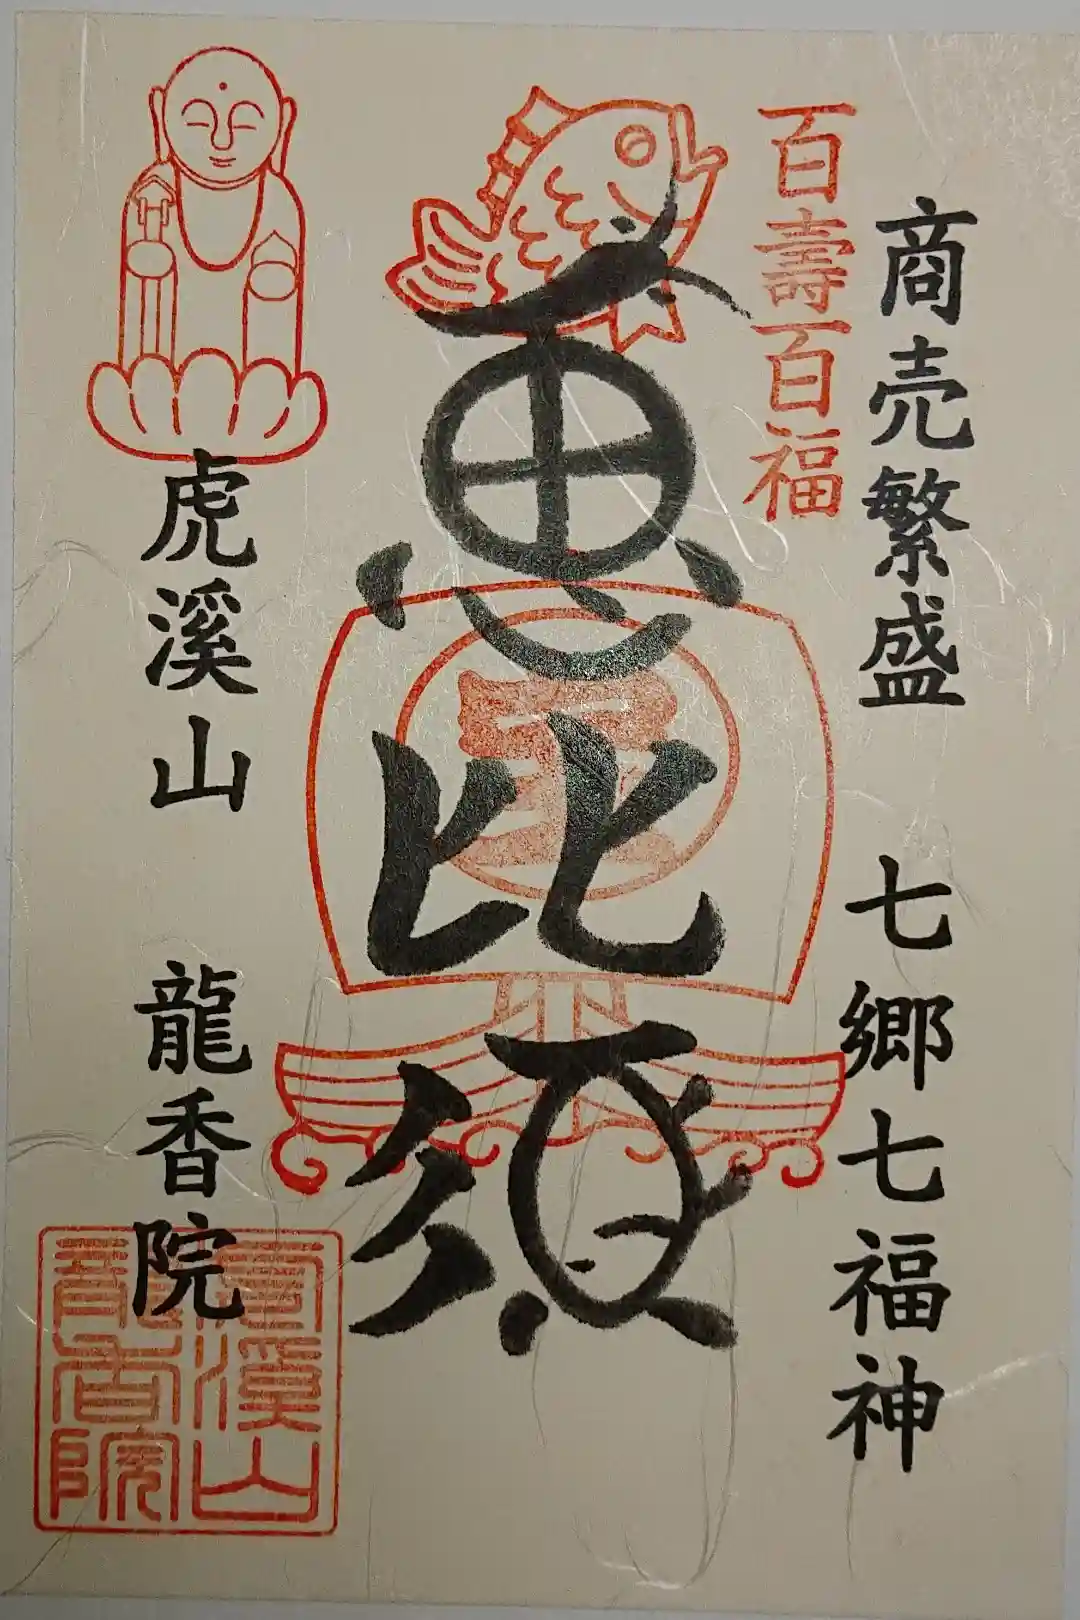 商売繁盛 七郷七福神
百壽百福
恵比須
寿
虎溪山 龍香院
虎溪山
龍香院